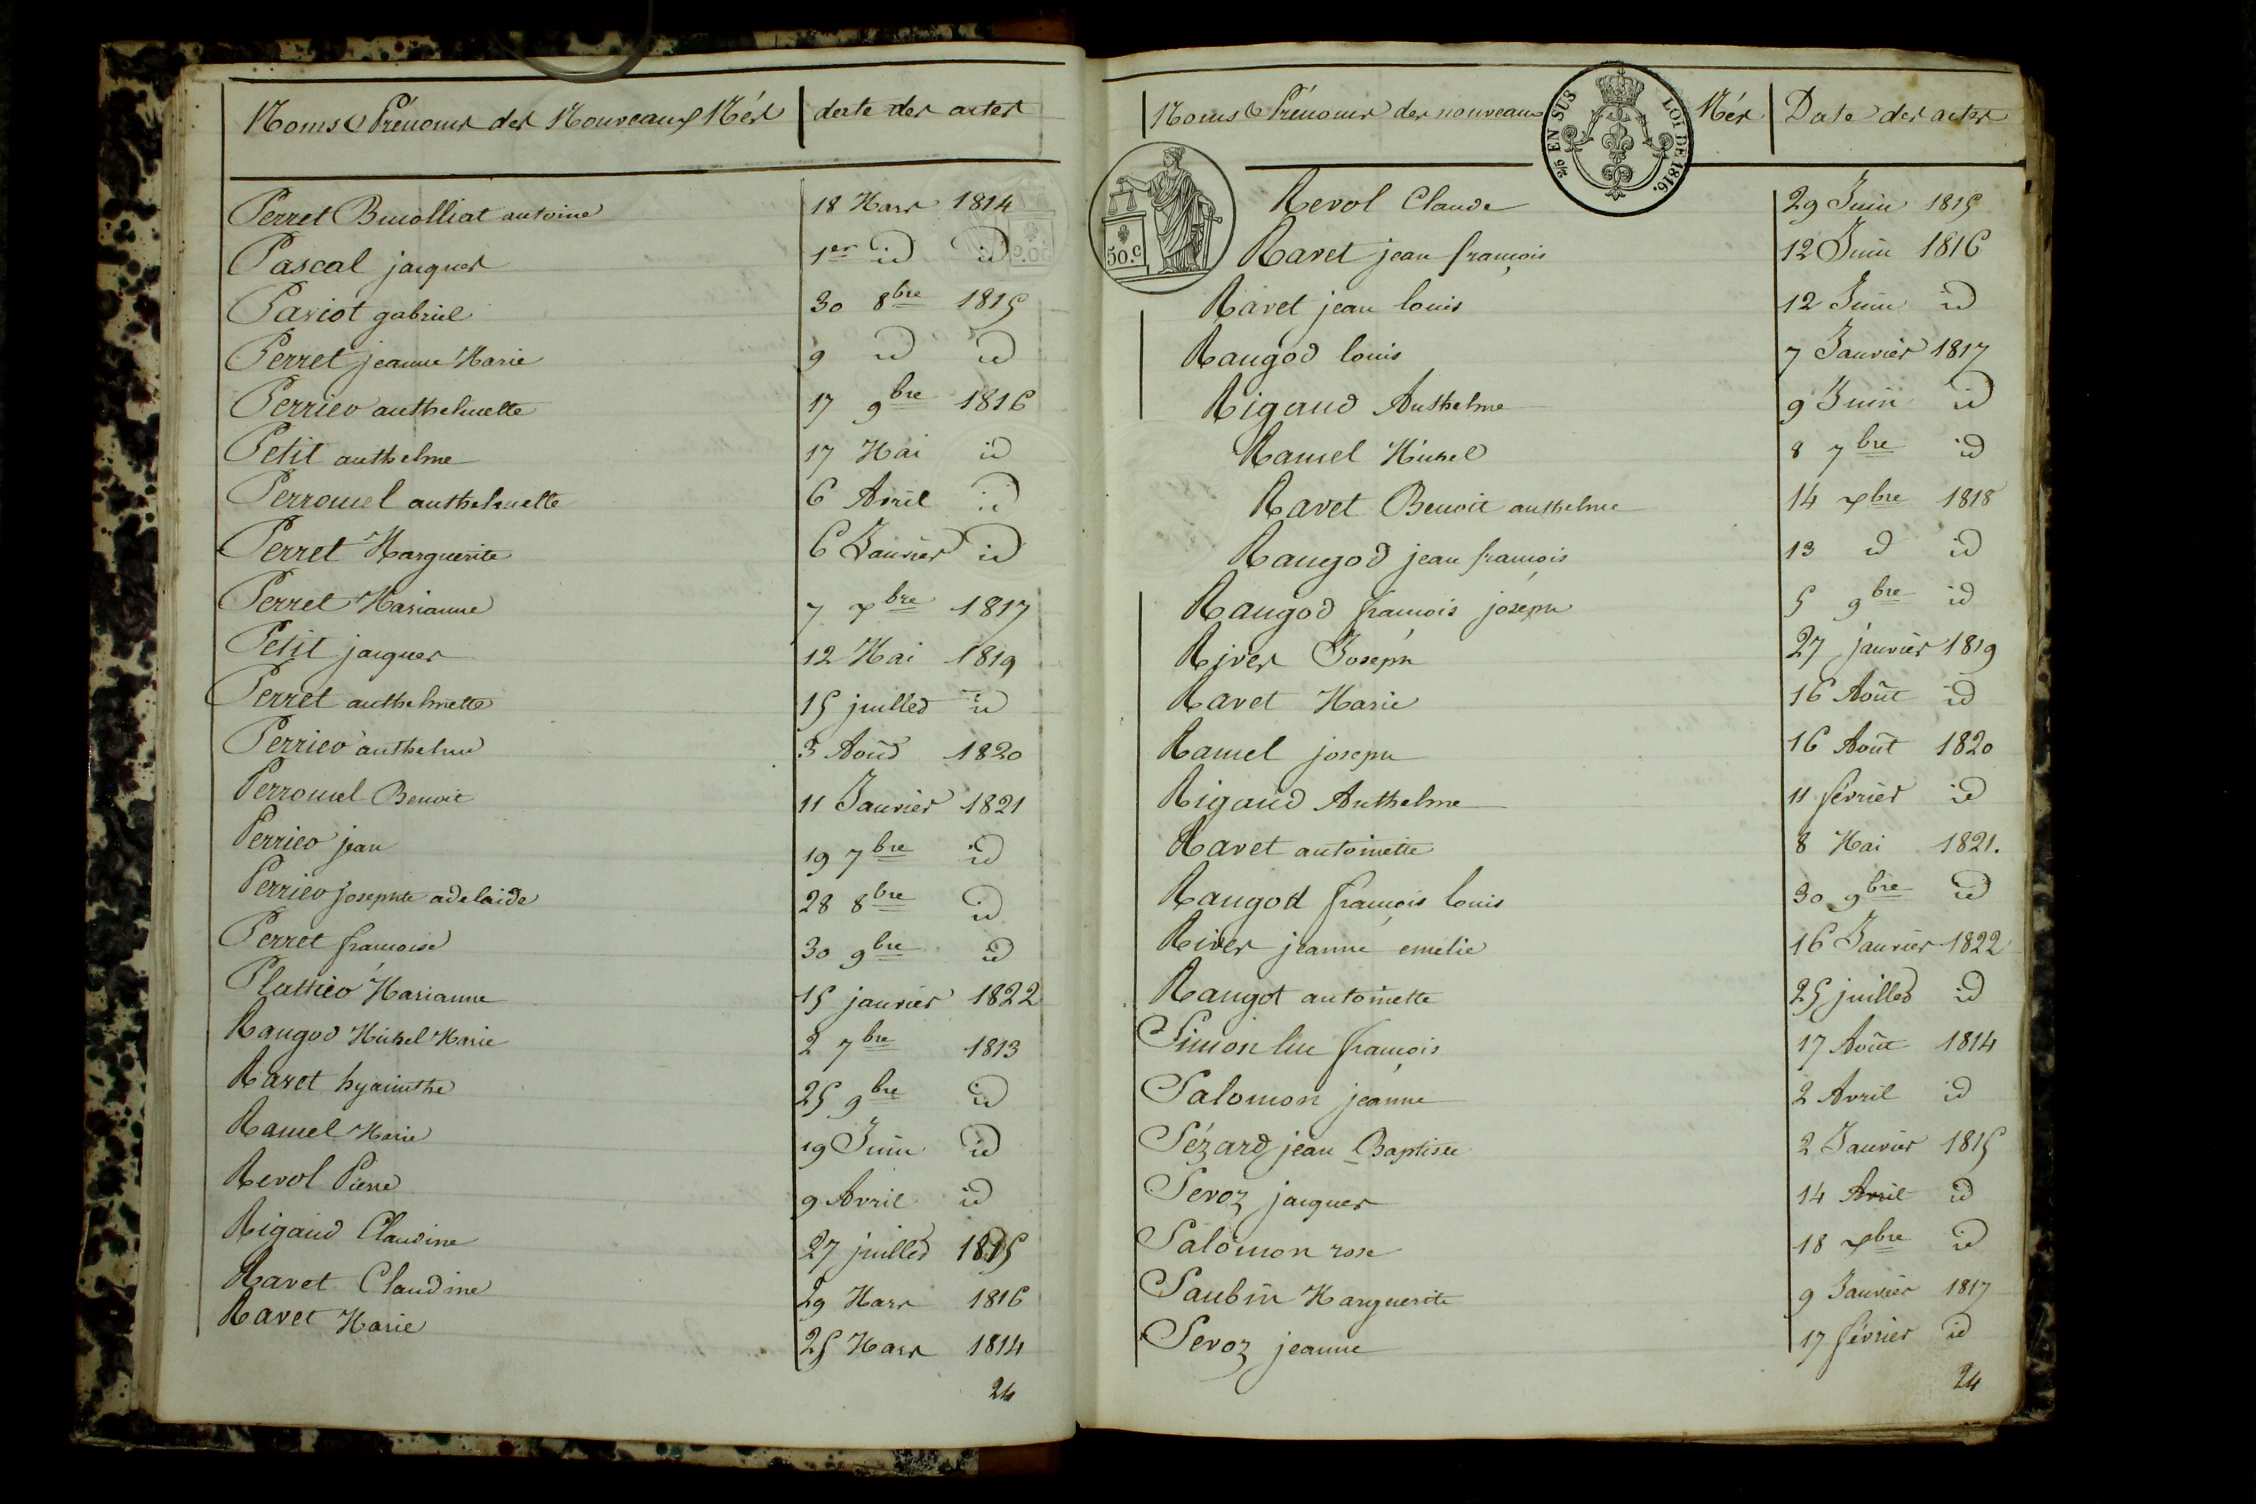 Noms & Prénoms des Nouveaux Nés | date des actes
Perret Buvolliat antoine 18 Mars 1814
Pascal jacques 1er id id
Pariot gabriel 30 8bre 1815
Perret jeanne Marie 9 id id
Perrier anthelmette 17 9bre 1816
Petit anthelme 17 Mai id
Perromel anthelmette 6 Avril id
Perret Marguerite 6 Janvier id
Perret Marianne 7 xbre 1817
Petit jacques 12 Mai 1819
Perret anthelmette 15 juillet id
Perrier anthelme 3 Août 1820
Perromel Benoit 11 Janvier 1821
Perrier jean 19 7bre id
Perrier josephte adelaide 28 8bre id
Perret françoise 30 9bre id
Marianne 15 janvier 1822
Rangod Michel Marie 2 7bre 1813
Ravet hyacinthe 25 9bre id
Ramel Marie 19 Juin id
Revol Pierre 9 Avril id
Rigaud Claudine 27 juillet 1815
Ravet Claudine 29 Mars 1816
Ravet Marie 25 Mars 1814
24
Noms & Prénoms des nouveaux Nés | Date des actes
EN SUS LOI DE 1816.
50.c
Revol Claude 29 Juin 1815
Ravet jean françois 12 Juin 1816
Ravet jean louis 12 Juin id
Rangod louis 7 Janvier 1817
Rigaud Anthelme 9 Juin id
Ramel Michel 8 7bre id
Ravet Benoit anthelme 14 xbre 1818
Rangod jean françois 13 id id
Rangod françois joseph 5 9bre id
River Joseph 27 janvier 1819
Ravet Marie 16 Août id
Ramel joseph 16 Août 1820
Rigaud Anthelme 11 février id
Ravet antoinette 8 Mai 1821.
Rangod françois louis 30 9bre id
River jeanne emelie 16 Janvier 1822
Rangot antoinette 25 juillet id
Simon luc françois 17 Août 1814
Salomon jeanne 2 Avril id
Sézard jean Baptiste 2 Janvier 1815
Sevoz jacques 14 Avril id
Salomon rose 18 xbre id
Saubin Marguerite 9 Janvier 1817
Sevoz jeanne 17 février id
24